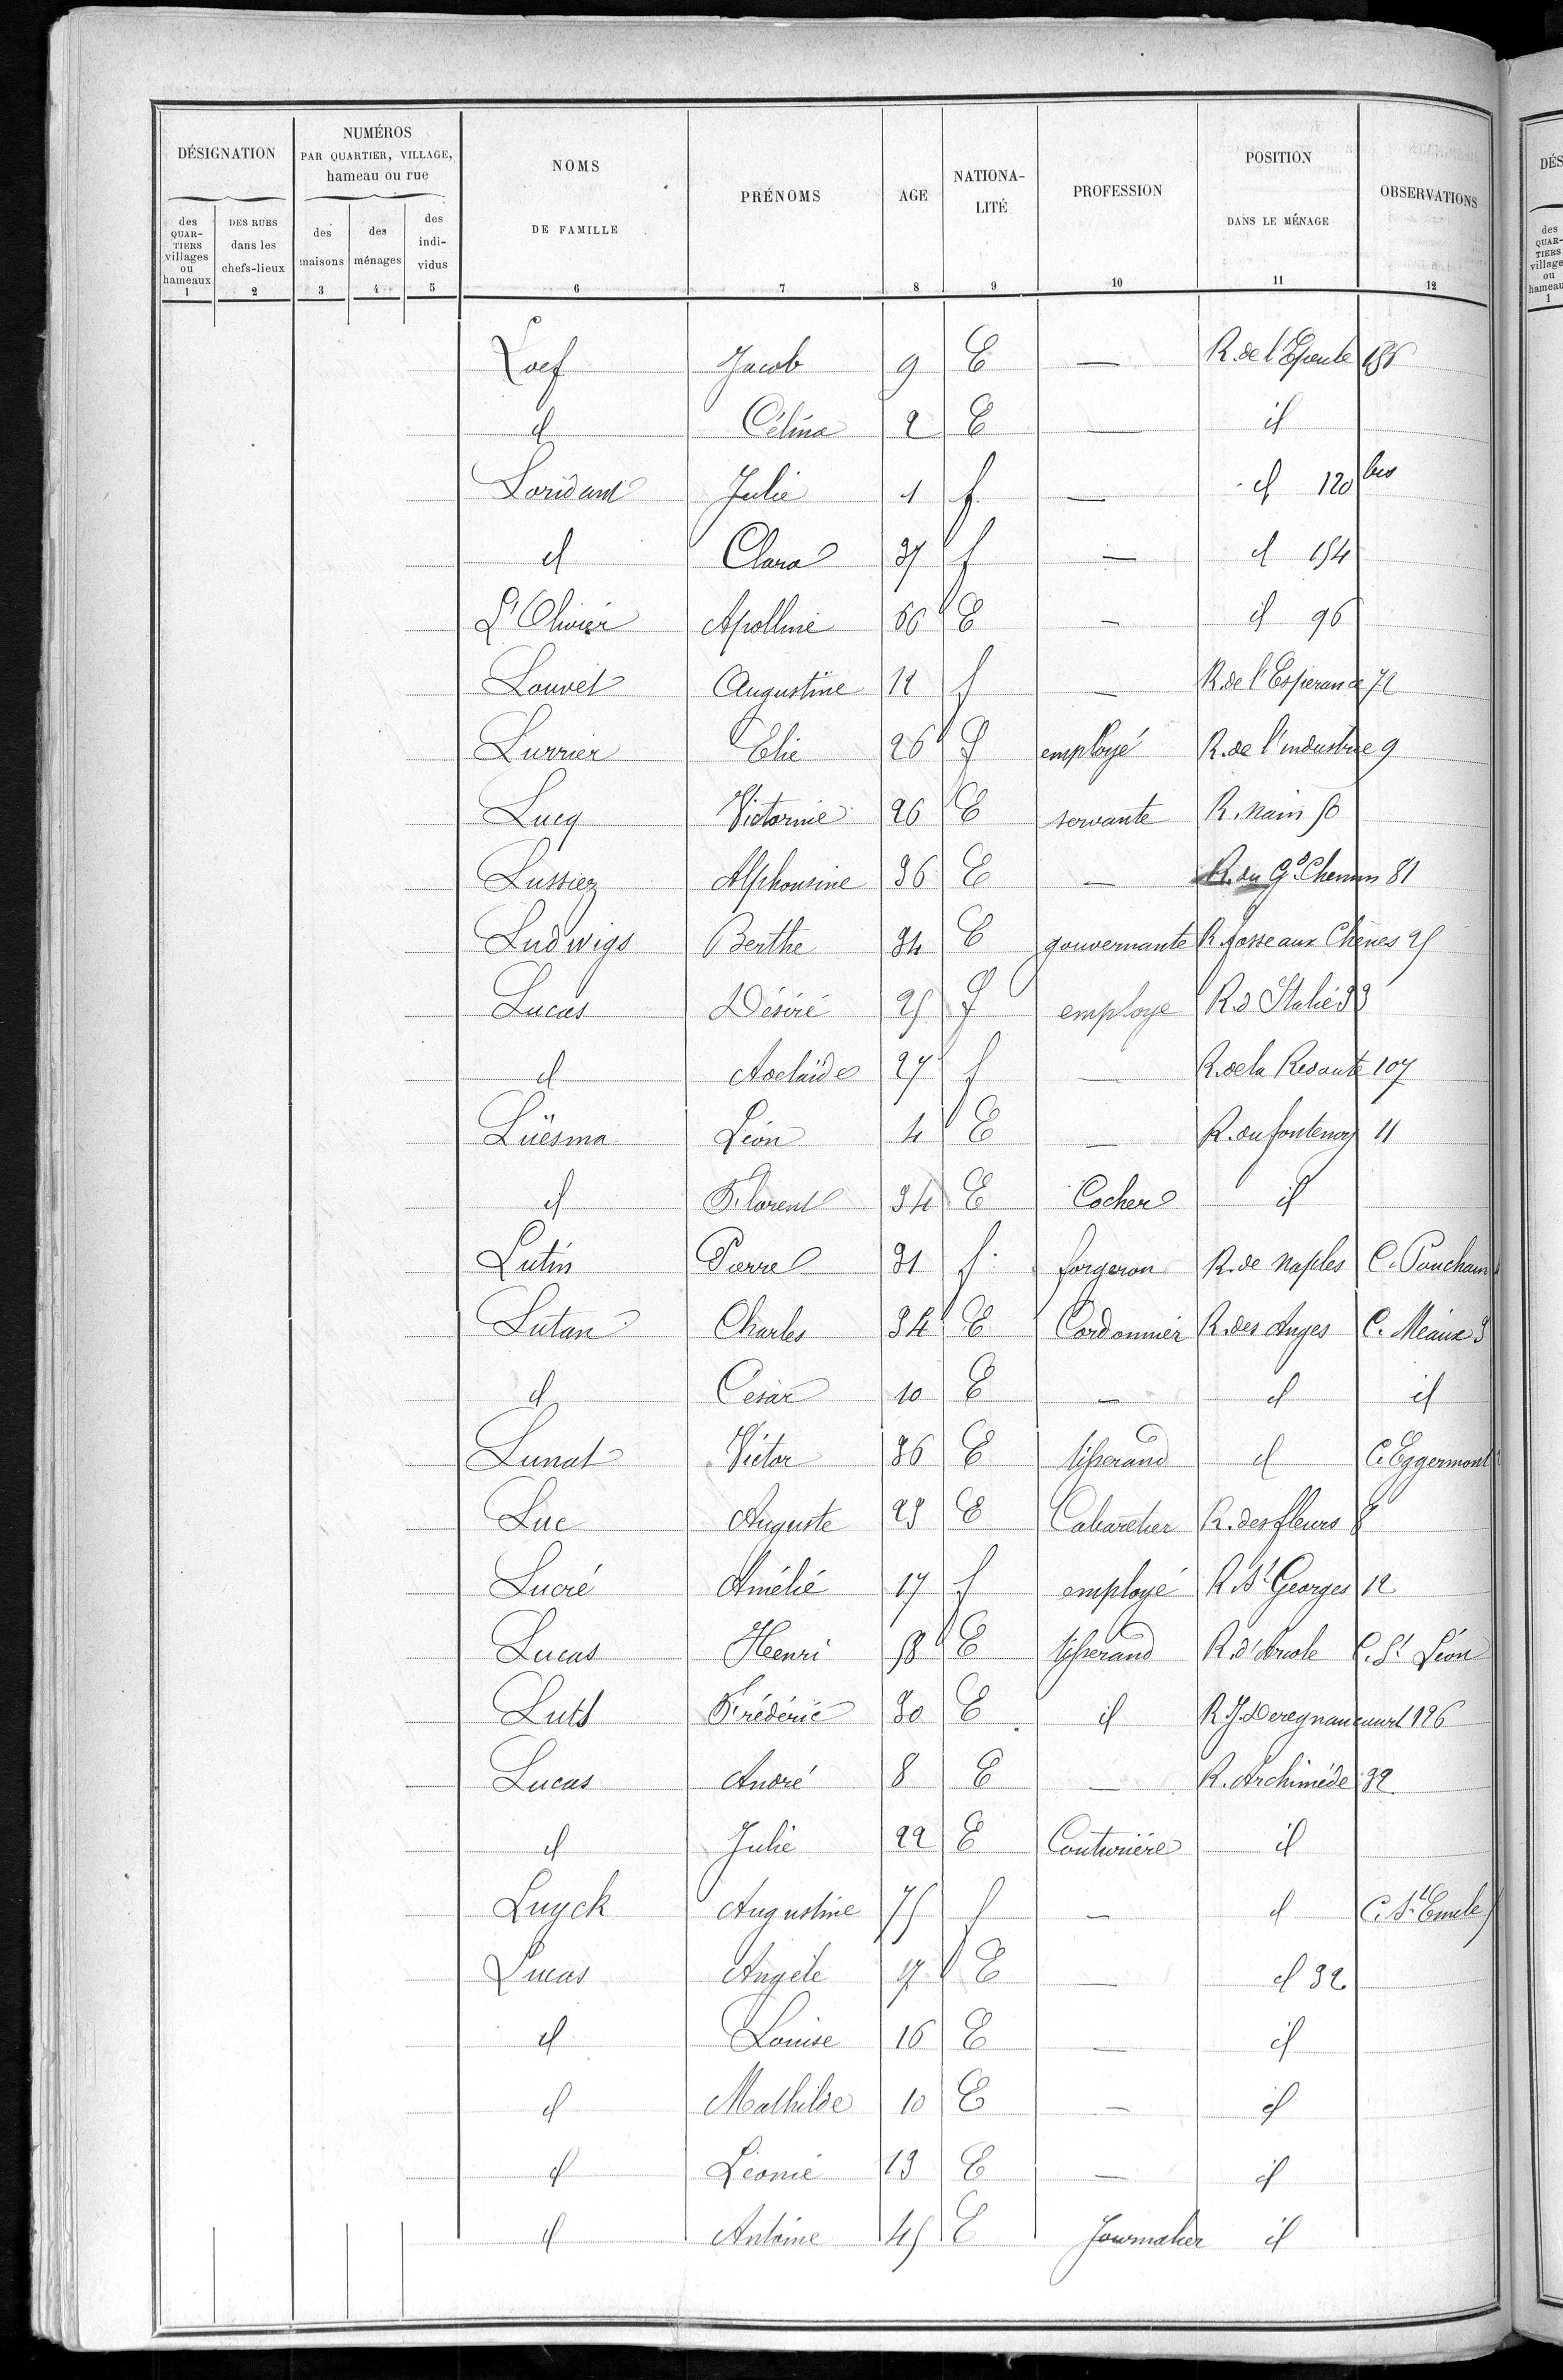 DÉSIGNATION NUMÉROS PAR QUARTIER, VILLAGE, hameau ou rue NOMS DE FAMILLE PRÉNOMS AGE NATIONA-LITÉ PROFESSION POSITION DANS LE MÉNAGE OBSERVATIONS
des QUAR-TIERS villages ou hameaux DES RUES dans les chefs-lieux des maisons des ménages des indi-vidus
1 2 3 4 5 6 7 8 9 10 11 12
Loef Jacob 9 E — R. de l'Epeule 156
id Célina 2 E — id
Loridant Julie 1 f — id 120 bis
id Clara 37 f — id 154
L'Olivier Apolline 66 E — id 96
Louvet Augustine 12 f — R. de l'Esperance 72
Lurrier Elie 26 f employé R. de l'industrie 9
Lucq Victorine 26 E servante R. Nain 50
Lussiez Alphonsine 36 E — R. du Gd Chemin 81
Ludwigs Berthe 34 E gouvernante R. fosse aux Chênes 25
Lucas Désiré 25 f employe R. d'Italie 33
id Adelaïde 27 f — R. de la Redoute 107
Lüesma Léon 4 E — R. du fontenoy 11
id Florent 34 E Cocher id
Lutin Pierre 31 f. forgeron R. de Naples
Lutan Charles 34 E Cordonnier R. des Anges C. Meaux 3
id Cesar 10 E — id id
Lunat Victor 36 E tisserand id C. Eggermont
Luc Auguste 23 E Cabaretier R. des fleurs 8
Lucré Amélié 17 f employé R. St Georges 12
Lucas Henri 58 E tisserand R. d'Arcole C. St Léon
Luts Frédéric 30 E id R. J. Deregnaucourt 126
Lucas André 8 E — R. Archimède 32
id Julie 22 E Couturière id
Luyck Augustine 75 f — id C. St Emile
Lucas Angèle 17 E — id 32
id Louise 16 E — id
id Mathilde 10 E — id
id Léonie 13 E — id
id Antoine 45 E Journalier id
DÉS
des QUAR-TIERS village ou hameau
1